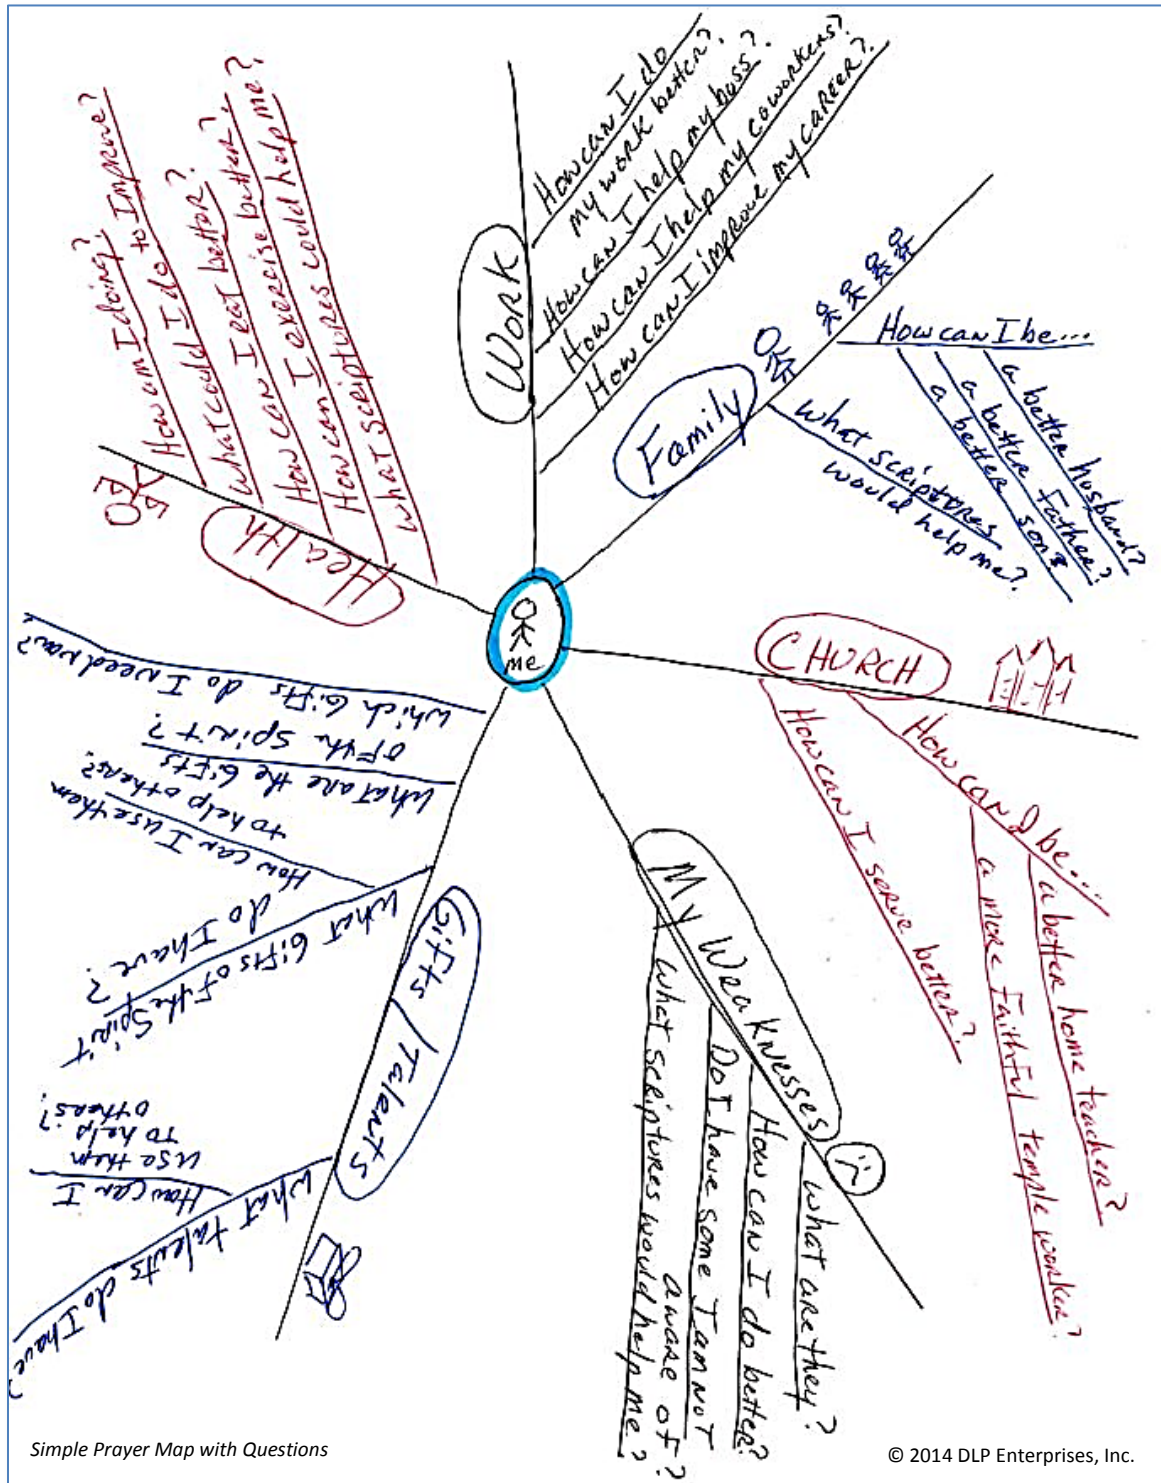 me
Work
How can I do
my work better?
How can I help my boss?
How can I help my coworkers?
How can I improve my career?
Family
How can I be...
a better husband?
a better father?
a better son?
What scriptures
would help me?
CHURCH
How can I be...
a better home teacher?
a more faithful temple worker?
How can I serve better?
My Weaknesses
What are they?
How can I do better?
Do I have some I am not
aware of?
What scriptures would help me?
Gifts/Talents
What talents do I have?
How can I
use them
to help
others?
What Gifts of the Spirit
do I have?
How can I use them
to help others?
What are the Gifts
of the Spirit?
Which Gifts do I need now?
Health
How am I doing?
What could I do to Improve?
How can I eat better?
How can I exercise better?
What scriptures could help me?
Simple Prayer Map with Questions
© 2014 DLP Enterprises, Inc.